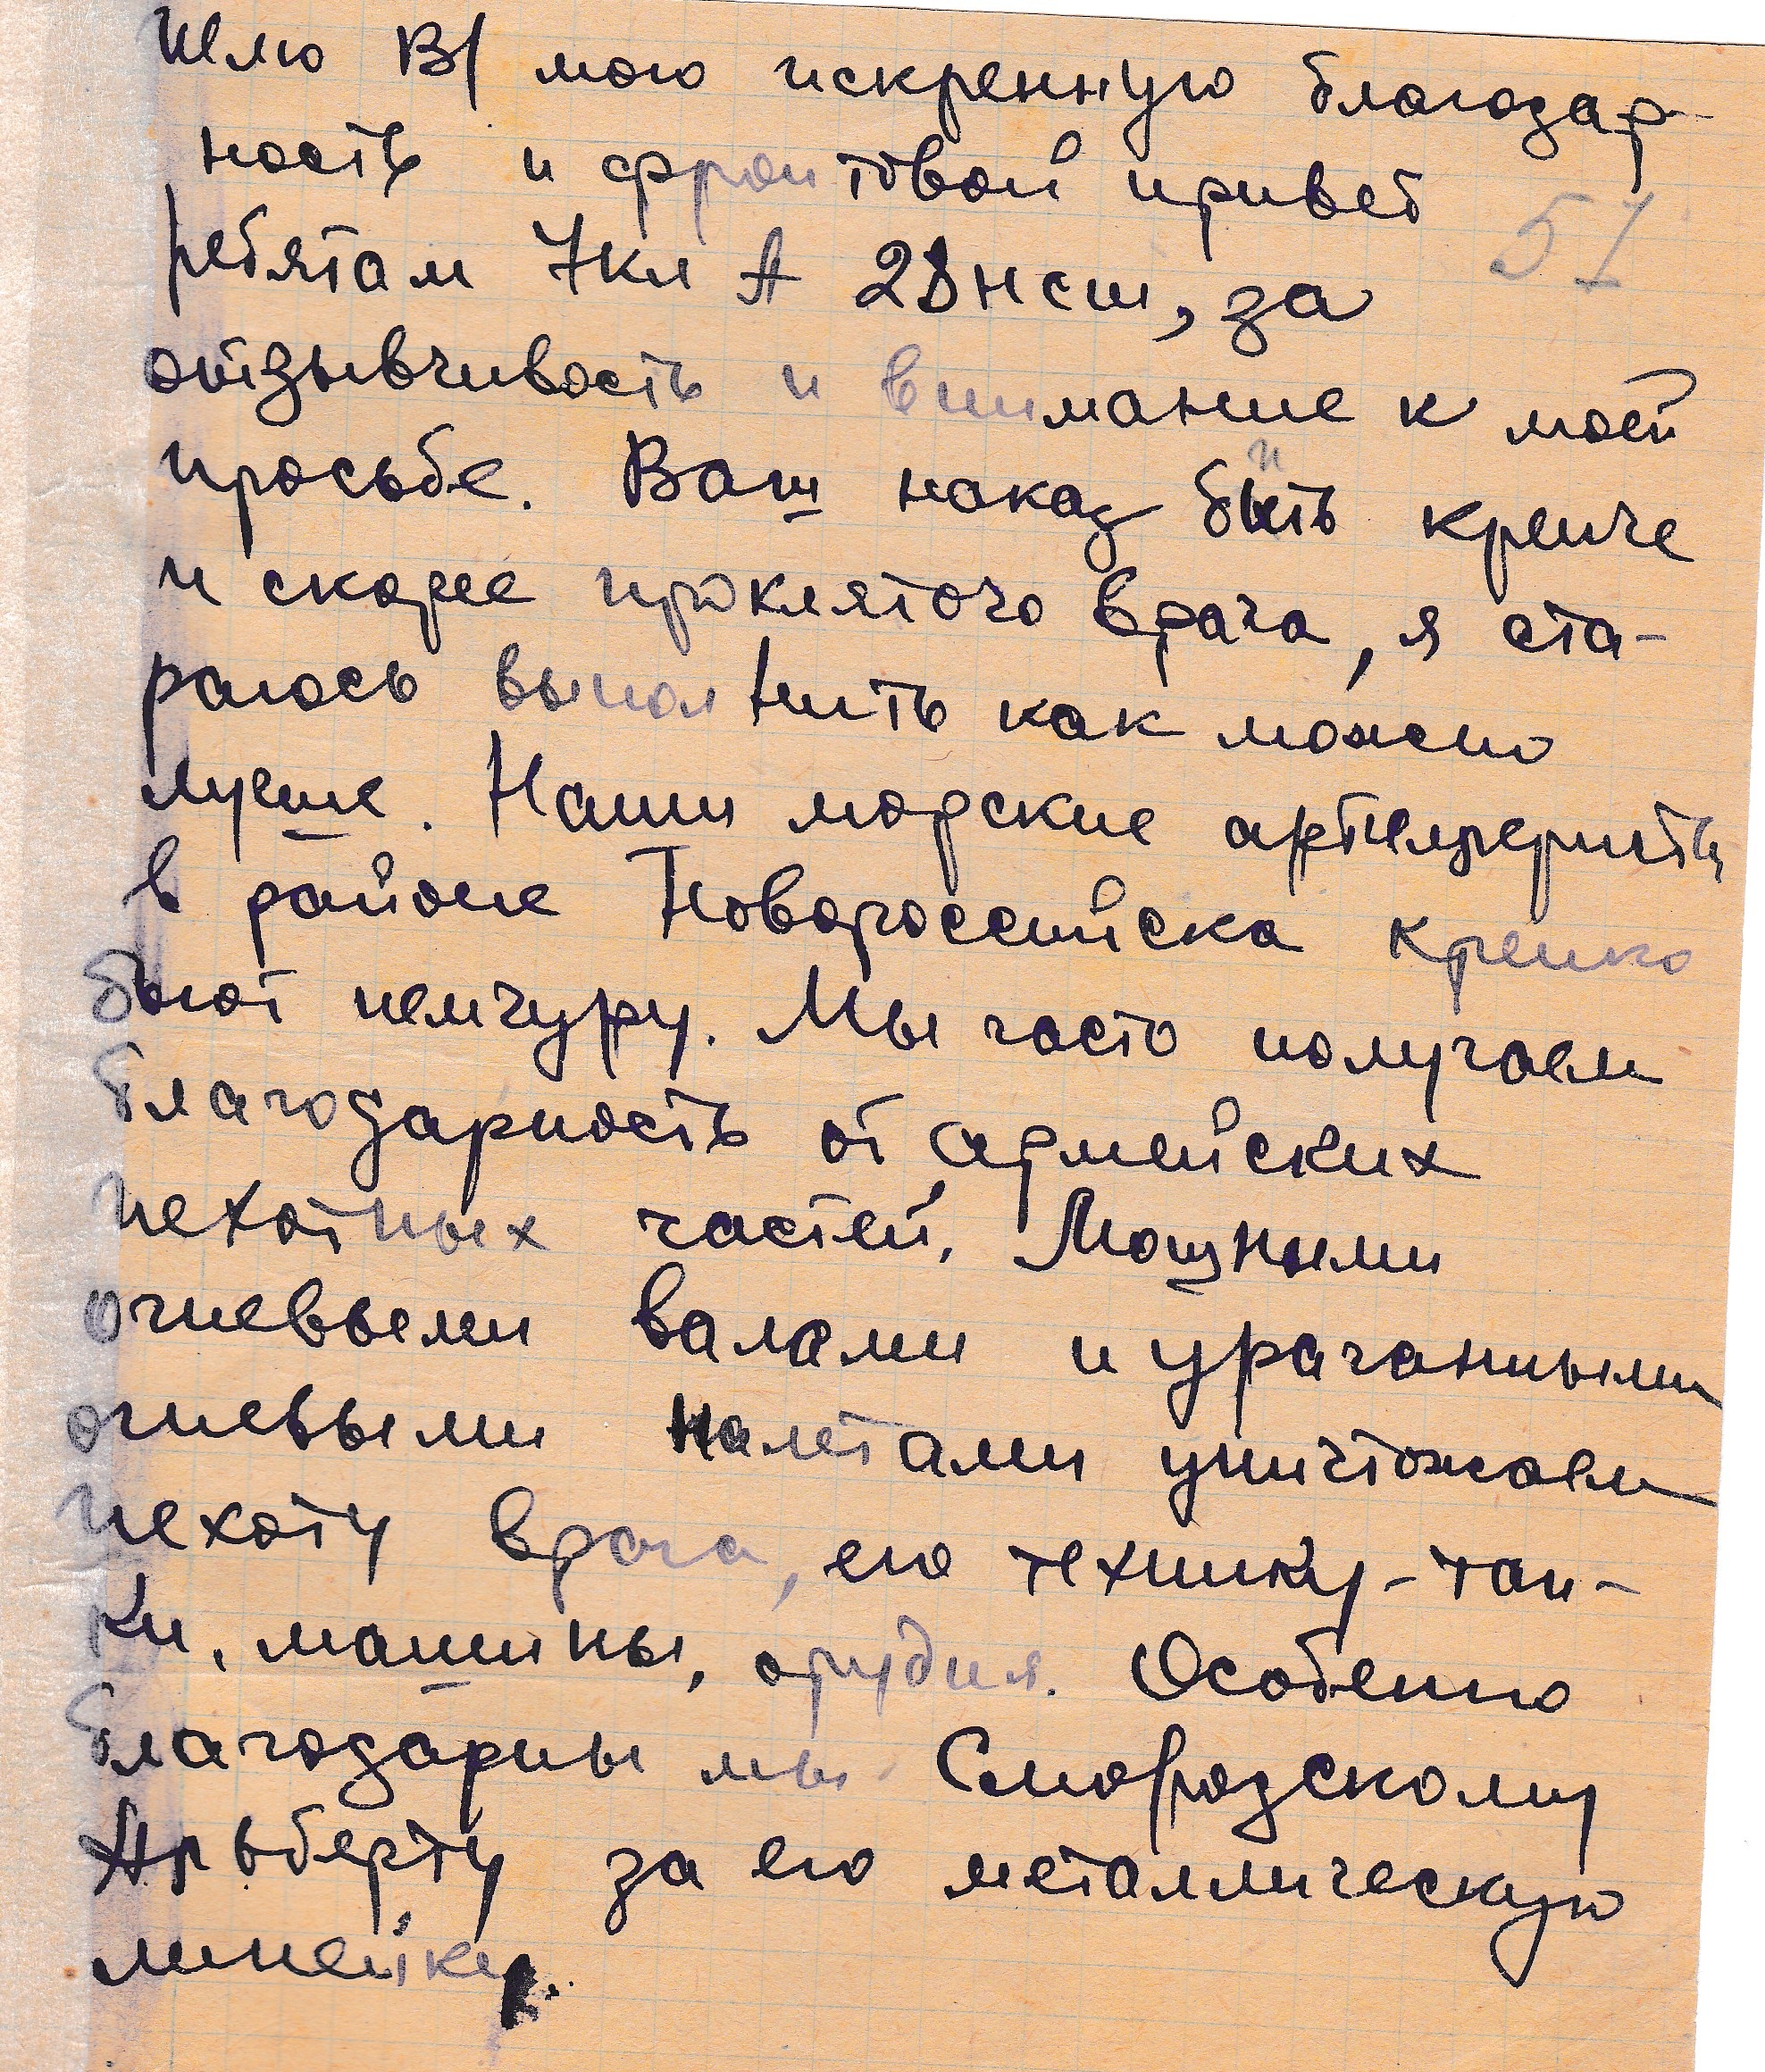 Шлю В/ мою искренную благодар-
ность и фронтовой привет
57
ребятам 7кл А 28нсш, за
отзывчивость и внимание к моей
просьбе. Ваш наказ бить крепче
и скорее проклятого врага, я ста-
раюсь выполнить как можно
лучше. Наши морские артиллеристы
в районе Новороссийска крепко
бьют немчуру. Мы часто получаем
благодарность от армейских
пехотных частей. Мощными
огневыми валами и ураганными
огневыми налетами уничтожаем
пехоту врага, его технику - тан-
ки, машины, орудия. Особенно
благодарны мы Смородскому
Альберту за его металлическую
линейку.